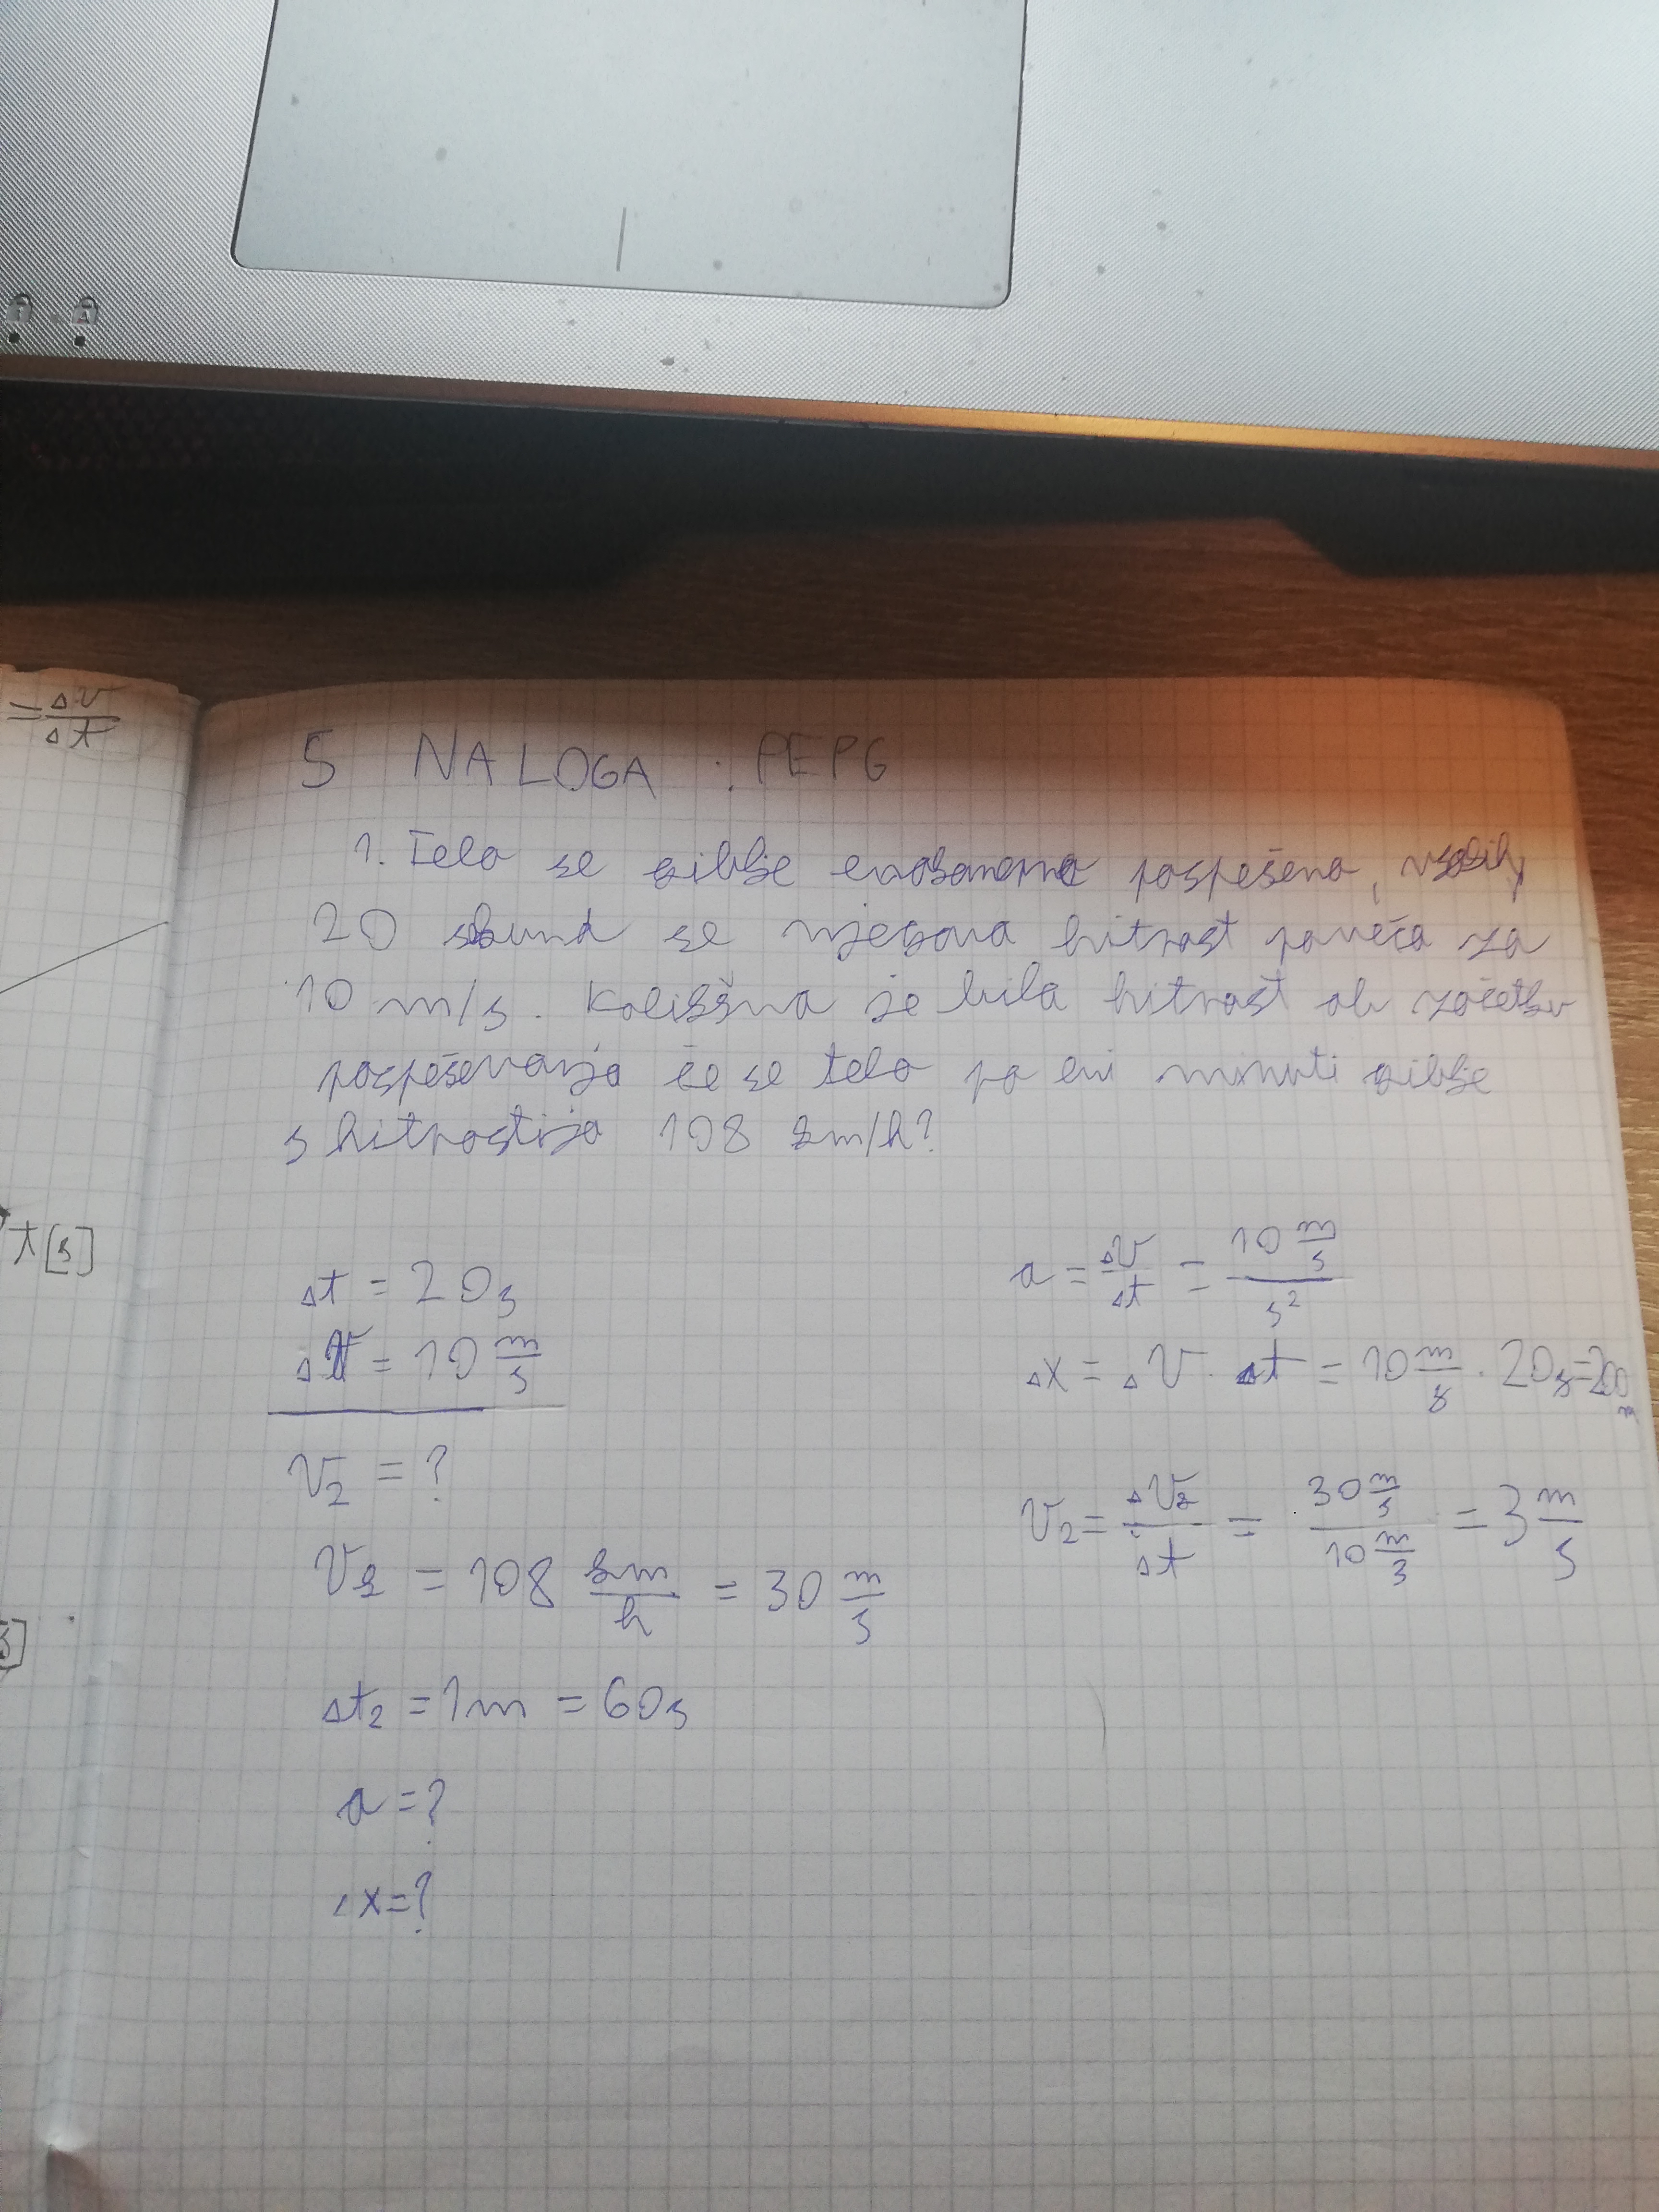 = Δv/Δt
5 NALOGA : PEPG
1. Telo se giblje enakomerno pospešeno, vsakih
20 sekund se njegova hitrost poveča za
10 m/s. Kolikšna je bila hitrost ob začetku
pospeševanja če se telo po eni minuti giblje
s hitrostijo 108 km/h?
t[s]
Δt = 20s
Δv = 10 m/s
v₂ = ?
= 108 km/h = 30 m/s
Δt₂ = 1m = 60s
a = ?
Δx = ?
a = Δv/Δt = 10 m/s / s²
Δx = Δv · Δt = 10 m/s · 20s = 200 m
v₂ = Δv₂/Δt = 30 m/s / 10 m/s = 3 m/s